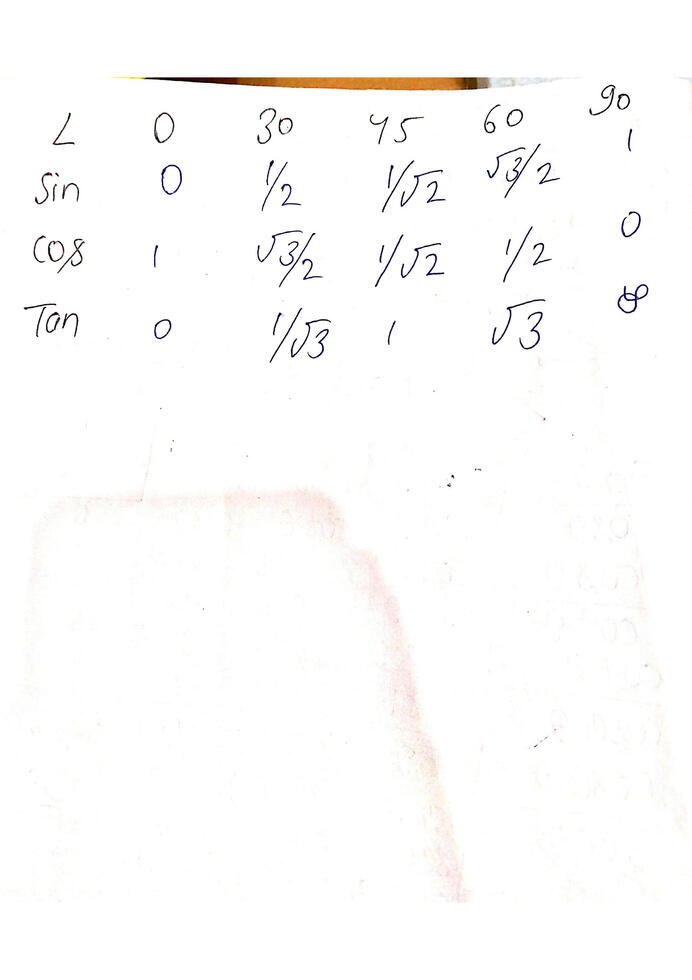 ∠ 0 30 45 60 90
Sin 0 1/2 1/√2 √3/2 1
Cos 1 √3/2 1/√2 1/2 0
Tan 0 1/√3 1 √3 ∞